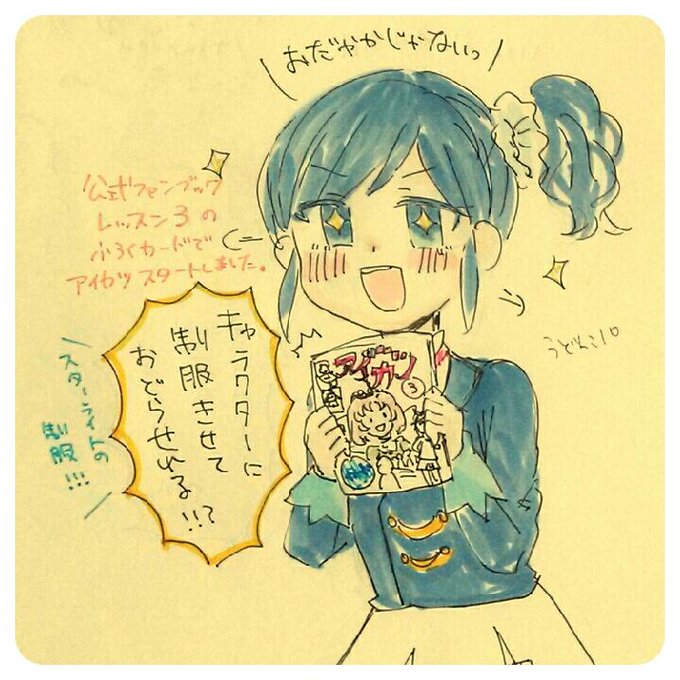 おだやかじゃないっ
公式ファンブック
レッスン3の
ふろくカードで
アイカツスタートしました。
キャラクターに
制服きせて
おどらせれる!!?
スターライトの
制服!!!
アイカツ
3